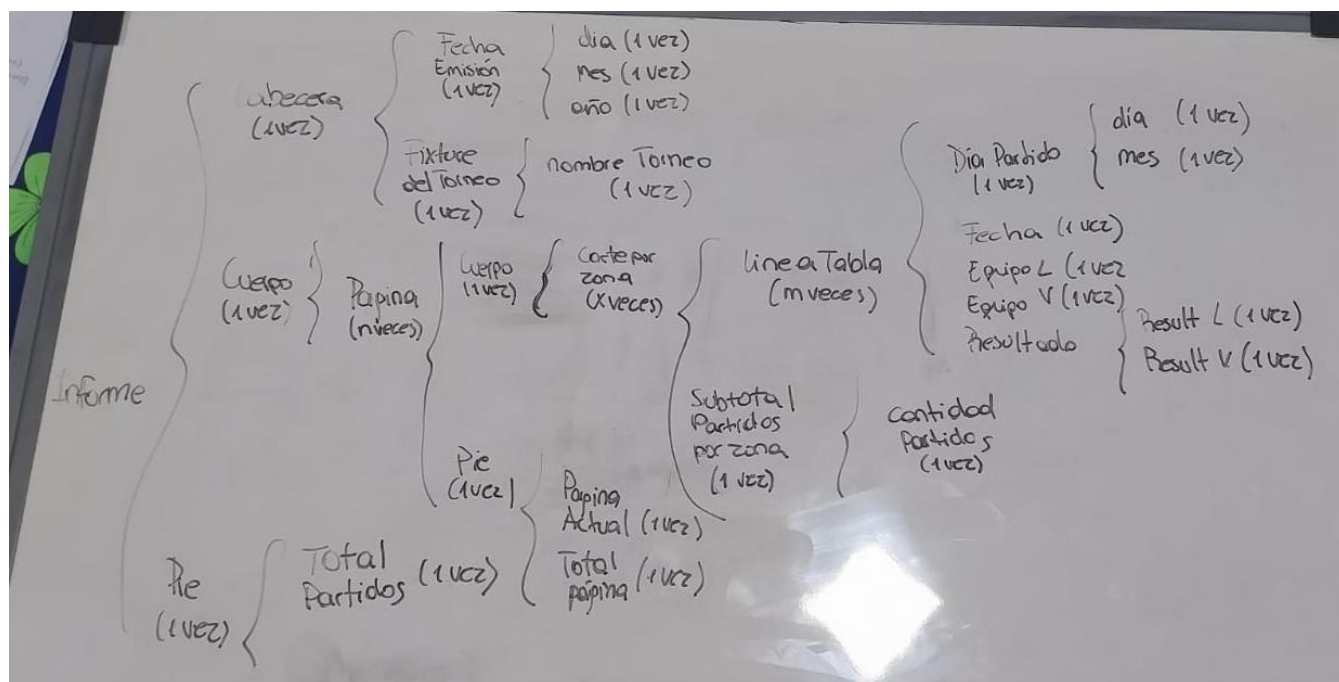 Informe
Cabecera
(1vez)
Fecha
Emisión
(1vez)
dia (1 vez)
mes (1 vez)
año (1 vez)
Fixture
del Torneo
(1 vez)
nombre Torneo
(1 vez)
Cuerpo
(1 vez)
Pagina
(nveces)
Cuerpo
(1 vez)
Corte por
zona
(Xveces)
linea Tabla
(mveces)
Día Partido
(1 vez)
día (1 vez)
mes (1 vez)
Fecha (1 vez)
Equipo L (1 vez
Equipo V (1 vez)
Resultado
Result L (1 vez)
Result V (1 vez)
Subtotal
Partidos
por zona
(1 vez)
cantidad
Partidos
(1 vez)
Pie
(1 vez)
Pagina
Actual (1 vez)
Total
página (1 vez)
Pie
(1 vez)
Total
Partidos (1 vez)